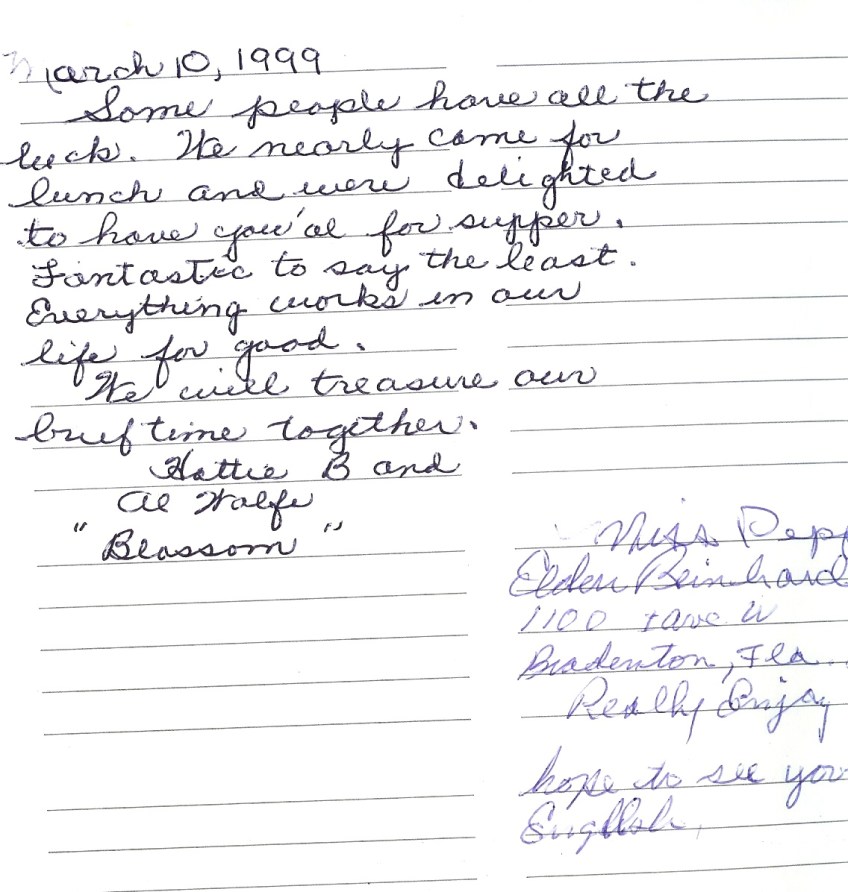 March 10, 1999
Some people have all the
luck. We nearly came for
lunch and were delighted
to have you'al for supper.
Fantastic to say the least.
Everything works in our
life for good.
We will treasure our
brief time together.
Hattie B and
Al Wolfe
"Blossom"
Miss Pepp
Elden Reinhard
1100 Ave W
Bradenton, Fla.
Really Enjoy
hope to see you